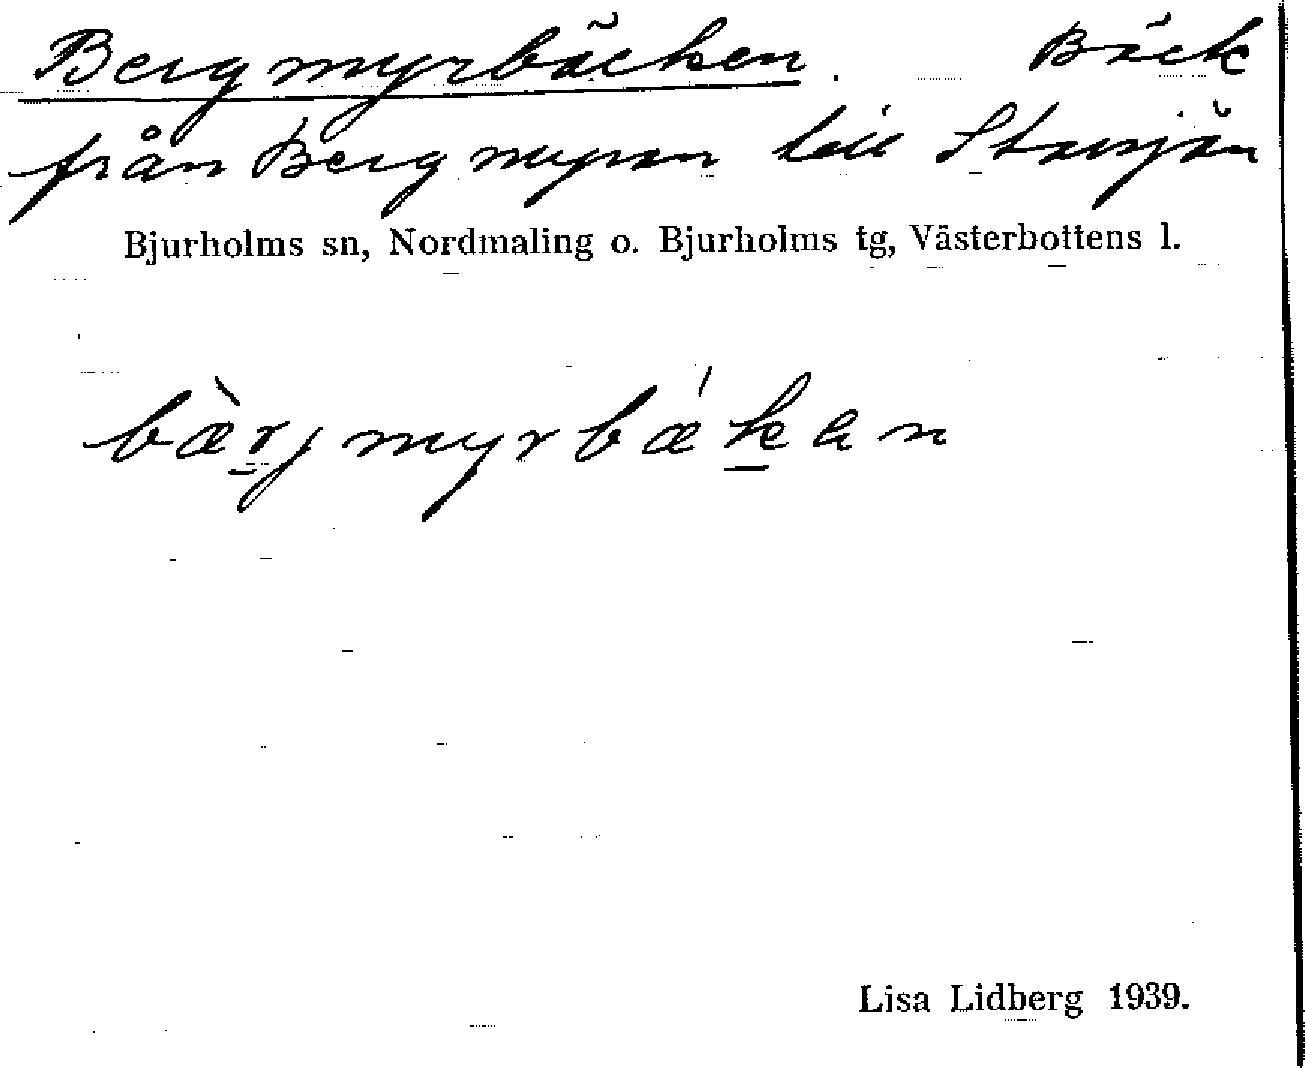 Bergmyrbäcken. Bäck
från Bergmyran till Storsjön
Bjurholms sn, Nordmaling o. Bjurholms tg, Västerbottens l.
bæ̀r̲jmyrbǽk̲an
Lisa Lidberg 1939.